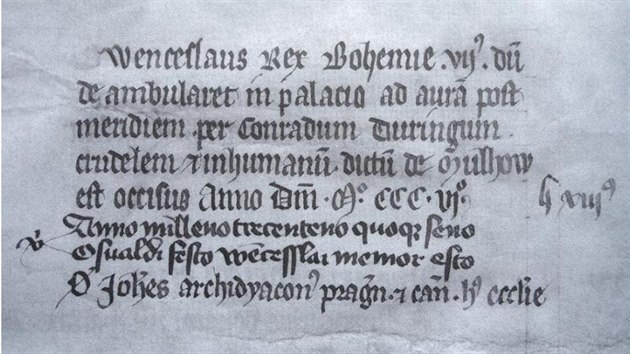 Wenceslaus Rex Bohemie .vijꝰ. dū
de ambularet in palacio ad aurā post
meridiem . per Conradum Duringum .
crudelem ⁊ inhumanū . dictū de Mulhow
est occisus Anno Dm̄ . Mº CCC . viº .
Anno milleno trecenteno quoqꝫ seno
Osualdi festo Wencesslai memor esto
Joh̄es archidyaconꝰ pragn̄ . ⁊ can̄ . hꝰ ecclīe